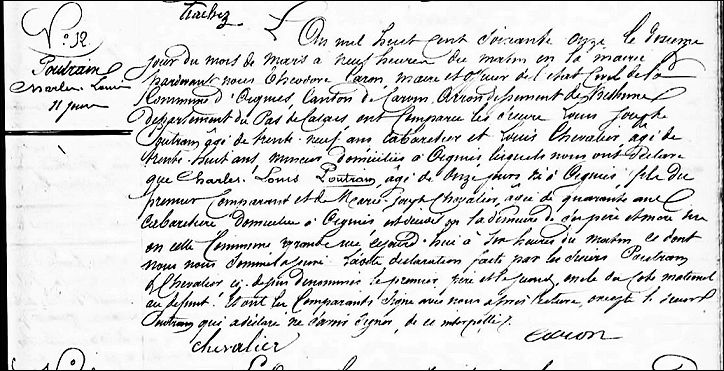 N° 12
Poutrain
Charles Louis
11 jours
L'an mil huit cent soixante onze le douze
jour du mois de Mars à neuf heures du matin en la mairie
pardevant nous Théodore Caron, maire et officier de l'état civil de la
Commune d'Oignies, Canton de Carvin, Arrondissement de Béthune
département du Pas de Calais ont comparu les sieurs Louis Joseph
Poutrain âgé de trente neuf ans cabaretier et Louis Chevalier, âgé de
trente huit ans, mineur domiciliés à Oignies, lesquels nous ont déclaré
que Charles Louis Poutrain, âgé de onze jours né à Oignies fils du
premier comparant et de Marie Chevalier, âgée de quarante ans
cabaretière domiciliée à Oignies est décédé en la demeure de ses père et mère
en cette Commune grande rue cejourd'hui à heures du matin ce dont
nous nous sommes assuré. Ladite déclaration faite par les sieurs Poutrain
& Chevalier ci-dessus dénommés le premier père et le second, oncle du coté maternel
au défunt. Et ont les comparants signé avec nous après lecture, excepté le sieur
Poutrain qui a déclaré ne savoir signer, de ce interpellé.
Chevalier
Caron